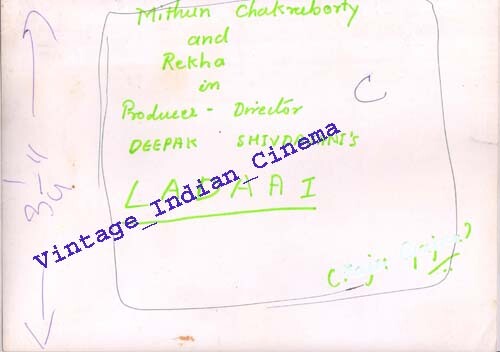 Mithun Chakraborty
and
Rekha
in
Producer - Director
DEEPAK SHIVDASANI'S
LADHAAI
C
Vintage_Indian_Cinema